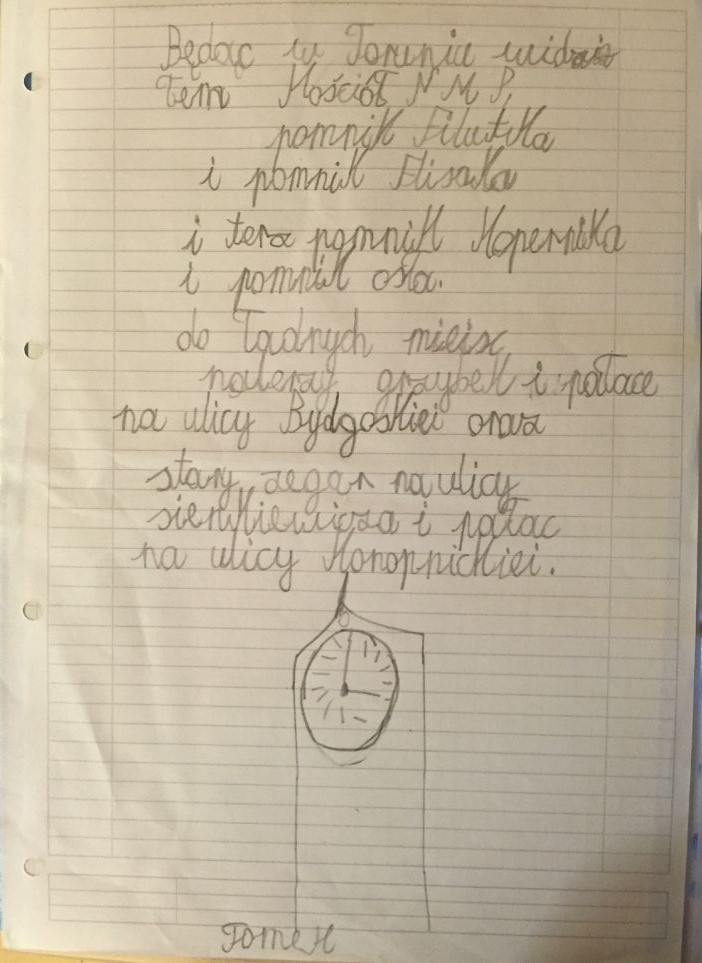 Będąc w Toruniu widzia
łem Kościół N M P,
pomnik Filutka
i pomnik Flisaka
i tera pomnik Kopernika
i pomnik osła.
do ładnych miejsc
należay grzybek i pałace
na ulicy Bydgoskiei oraz
stary zegar na ulicy
sienkiewicza i pałac
na ulicy Konopnickiei.
Tomek